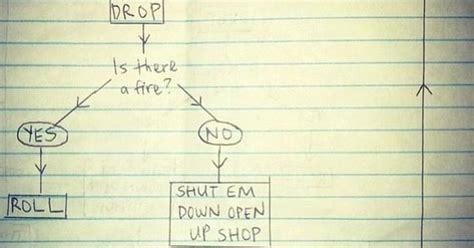 DROP
Is there
a fire?
YES
NO
ROLL
SHUT EM
DOWN OPEN
UP SHOP